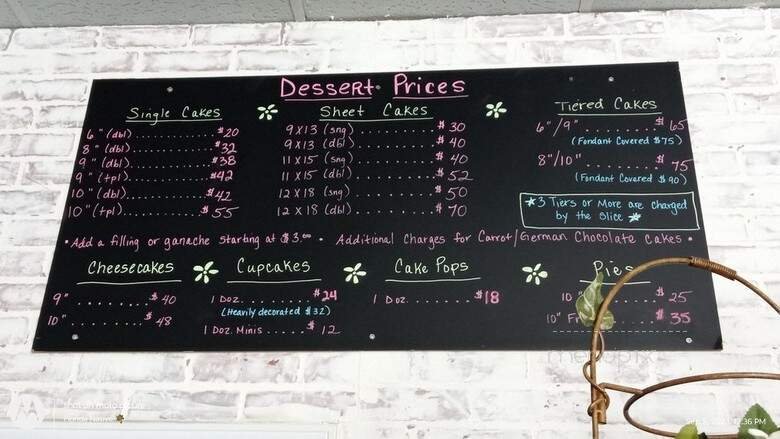 Dessert Prices
Single Cakes
6" (dbl) $20
8" (dbl) $32
9" (dbl) $38
9" (tpl) $42
10" (dbl) $42
10" (tpl) $55
Sheet Cakes
9 x 13 (sng) $30
9 x 13 (dbl) $40
11 x 15 (sng) $40
11 x 15 (dbl) $52
12 x 18 (sng) $50
12 x 18 (dbl) $70
Tiered Cakes
6"/9" $65
(Fondant Covered $75)
8"/10" $75
(Fondant Covered $90)
3 Tiers or More are charged
by the Slice
• Add a filling or ganache starting at $3.00 • Additional Charges for Carrot/German Chocolate Cakes •
Cheesecakes
9" $40
10" $48
Cupcakes
1 Doz. $24
(Heavily decorated $32)
1 Doz. Minis $12
Cake Pops
1 Doz. $18
Pies
10 $25
10" $35
menupix